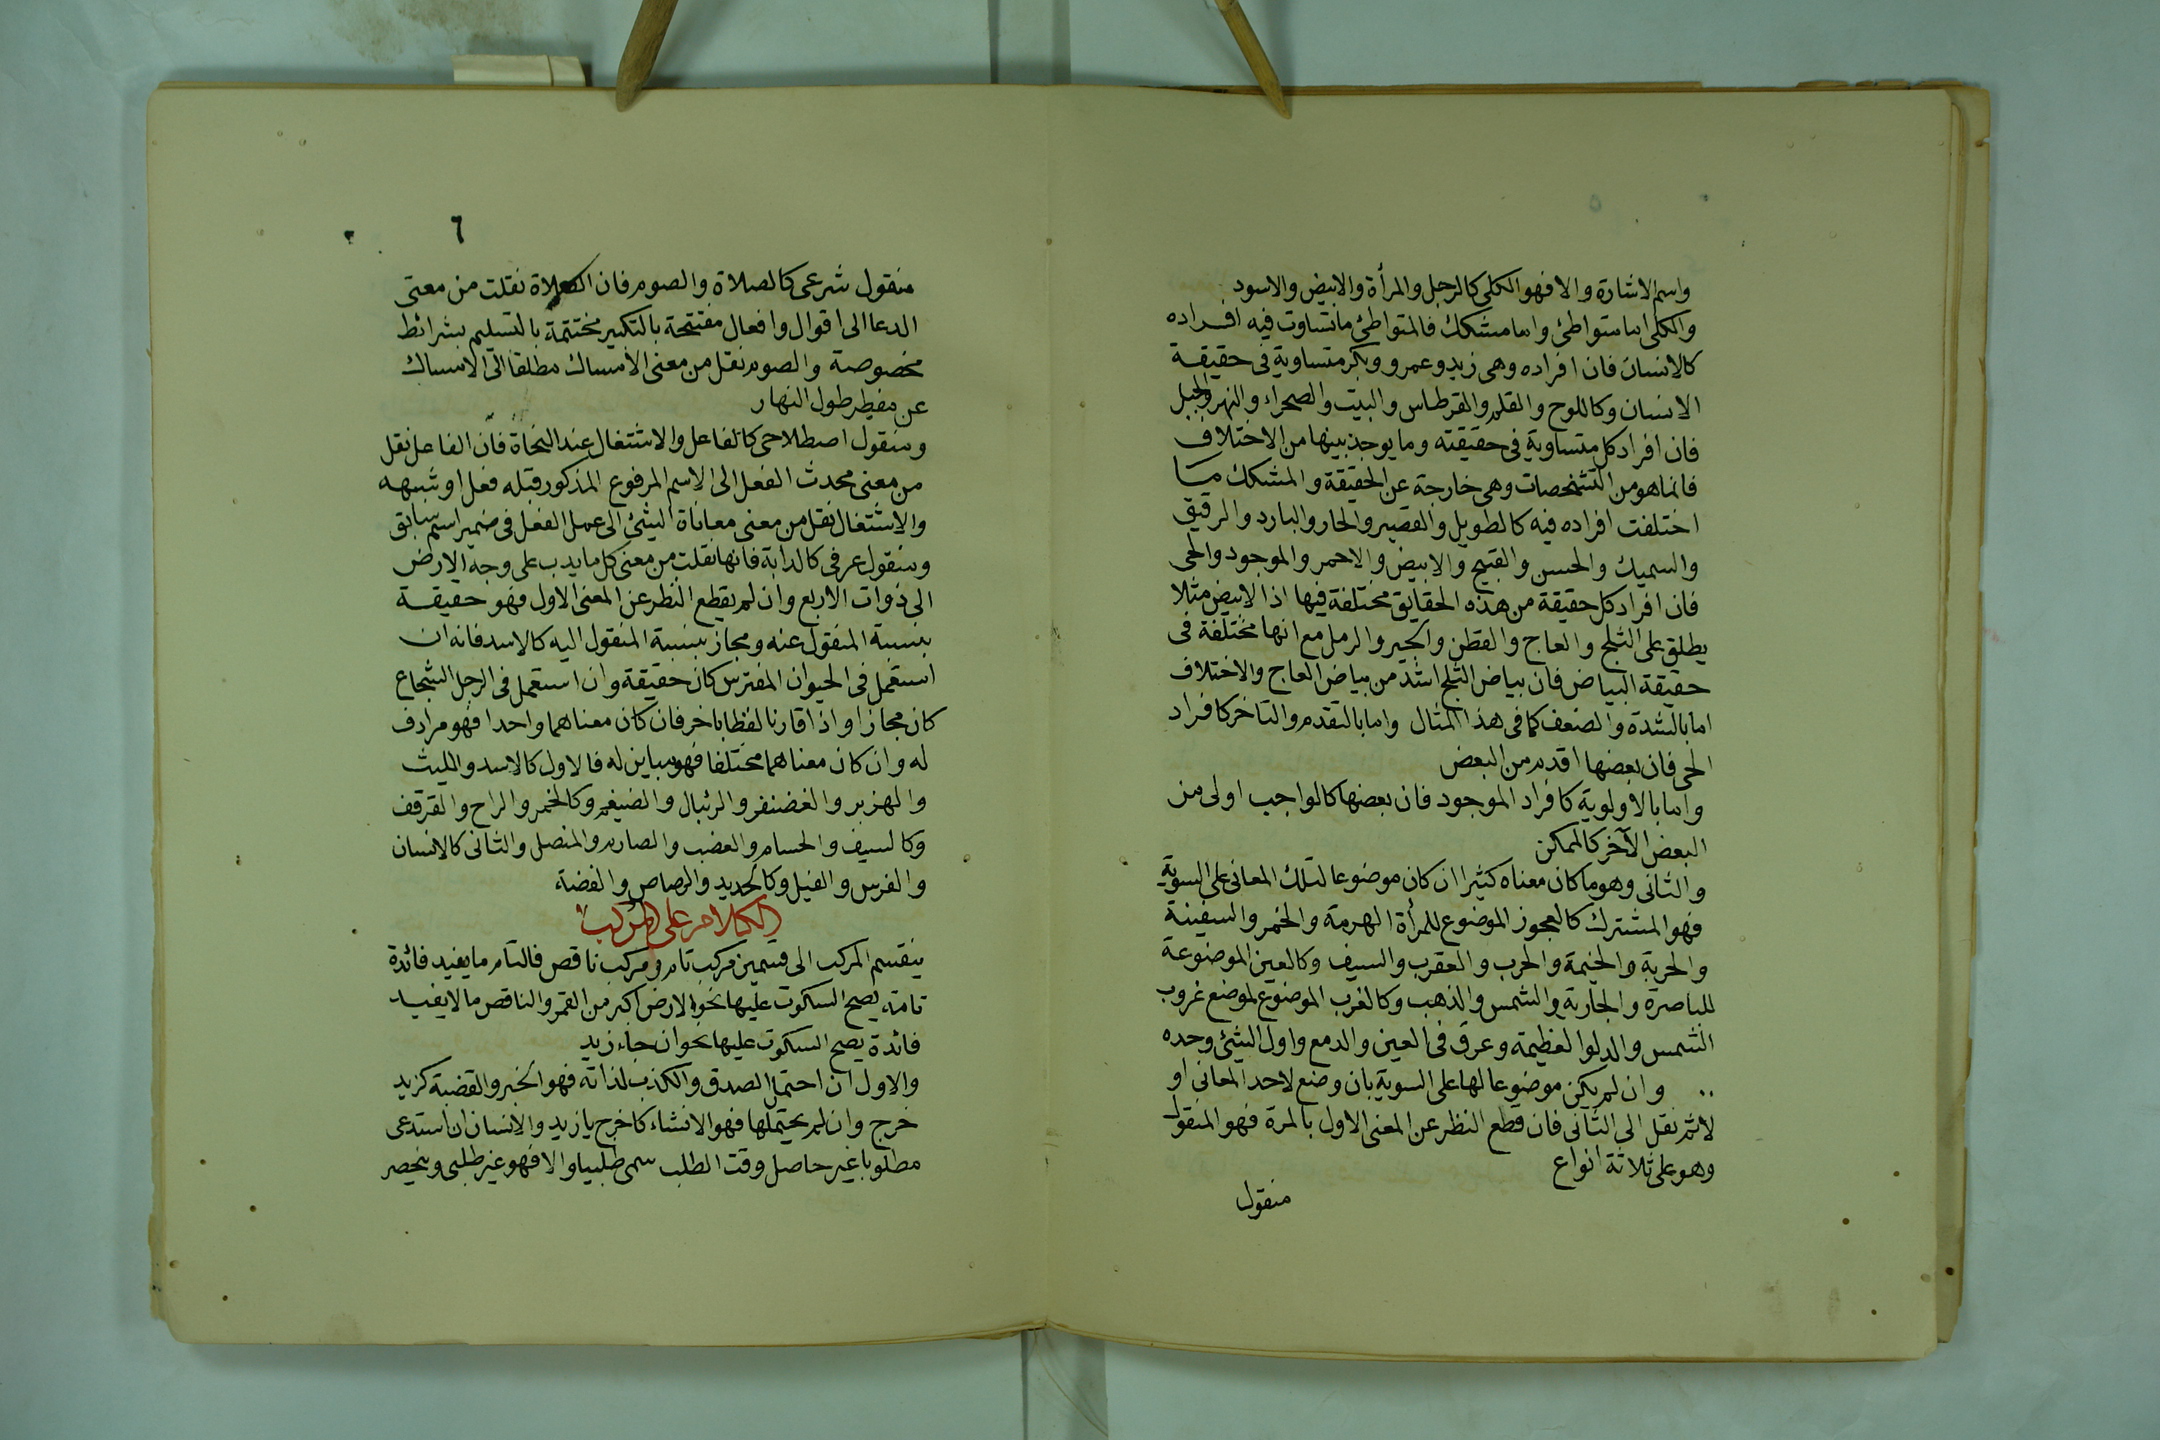 ٥
واسم الاشارة والا فهو الكلى كالرجل والمرأة والابيض والاسود
والكلى اما متواطئ واما مشكك فالمتواطئ ما تساوت فيه افراده
كالانسان فان افراده وهى زيد وعمرو وبكر متساوية فى حقيقة
الانسان وكاللوح والقلم والقرطاس والبيت والصحراء والنهر والجبل
فان افراد كل متساوية فى حقيقته وما يوجد بينها من الاختلاف
فانما هو من التشخصات وهى خارجة عن الحقيقة والمشكك ما
اختلفت افراده فيه كالطويل والقصير والحار والبارد والرقيق
والسميك والحسن والقبيح والابيض والاحمر والموجود والحى
فان افراد كل حقيقة من هذه الحقايق مختلفة فيها اذ الابيض مثلا
يطلق على الثلج والعاج والقطن والجير والرمل مع انها مختلفة فى
حقيقة البياض فان بياض الثلج اشد من بياض العاج والاختلاف
اما بالشدة والضعف كما فى هذا المثال واما بالتقدم والتاخر كافراد
الحى فان بعضها اقدم من البعض
واما بالاولوية كافراد الموجود فان بعضها كالواجب اولى من
البعض الآخر كالممكن
والثانى وهو ما كان معناه كثيرا ان كان موضوعا لتلك المعانى على السوية
فهو المشترك كالعجوز الموضوع للمرأة الهرمة والخمر والسفينة
والحربة والخيمة والحرب والعقرب والسيف وكالعين الموضوعة
للباصرة والجارية والشمس والذهب وكالغرب الموضوع لموضع غروب
الشمس والدلو العظيمة وعرق فى العين والدمع واول الشيئ وحده
وان لم يكن موضوعا لها على السوية بان وضع لاحد المعانى او
لا ثم نقل الى الثانى فان قطع النظر عن المعنى الاول بالمرة فهو المنقول
وهو على ثلاثة انواع
منقول
٦
منقول شرعى كالصلاة والصوم فان الصلاة نقلت من معنى
الدعا الى اقوال وافعال مفتتحة بالتكبير مختتمة بالتسليم بشرائط
مخصوصة والصوم نقل من معنى الامساك مطلقا الى الامساك
عن مفطر طول النهار
ومنقول اصطلاحى كالفاعل والاشتغال عند النحاة فان الفاعل نقل
من معنى محدث الفعل الى الاسم المرفوع المذكور قبله فعل او شبهه
والاشتغال نقل من معنى معاناة الشيئ الى عمل الفعل فى ضمير اسم سابق
ومنقول عرفى كالدابة فانها نقلت من معنى كل ما يدب على وجه الارض
الى ذوات الاربع وان لم يقطع النظر عن المعنى الاول فهو حقيقة
بنسبة المنقول عنه ومجاز بنسبة المنقول اليه كالاسد فانه ان
استعمل فى الحيوان المفترس كان حقيقة وان استعمل فى الرجل الشجاع
كان مجازا واذا قارنا لفظا باخر فان كان معناهما واحدا فهو مرادف
له وان كان معناهما مختلفا فهو مباين له فالاول كالاسد والليث
والهزبر والغضنفر والرئبال والضيغم وكالخمر والراح والقرقف
وكالسيف والحسام والعضب والصارم والمنصل والثانى كالانسان
والفرس والفيل وكالحديد والرصاص والفضة
الكلام على المركب
ينقسم المركب الى قسمين مركب تام ومركب ناقص فالتام ما يفيد فائدة
تامة يصح السكوت عليها نحو الارض اكبر من القمر والناقص ما لا يفيد
فائدة يصح السكوت عليها نحو ان جاء زيد
والاول ان احتمل الصدق والكذب لذاته فهو الخبر والقضية كزيد
خرج وان لم يحتملها فهو الانشاء كاخرج يا زيد والانسان ان استدعى
مطلوبا غير حاصل وقت الطلب سمى طلبيا والا فهو غير طلبى وينحصر